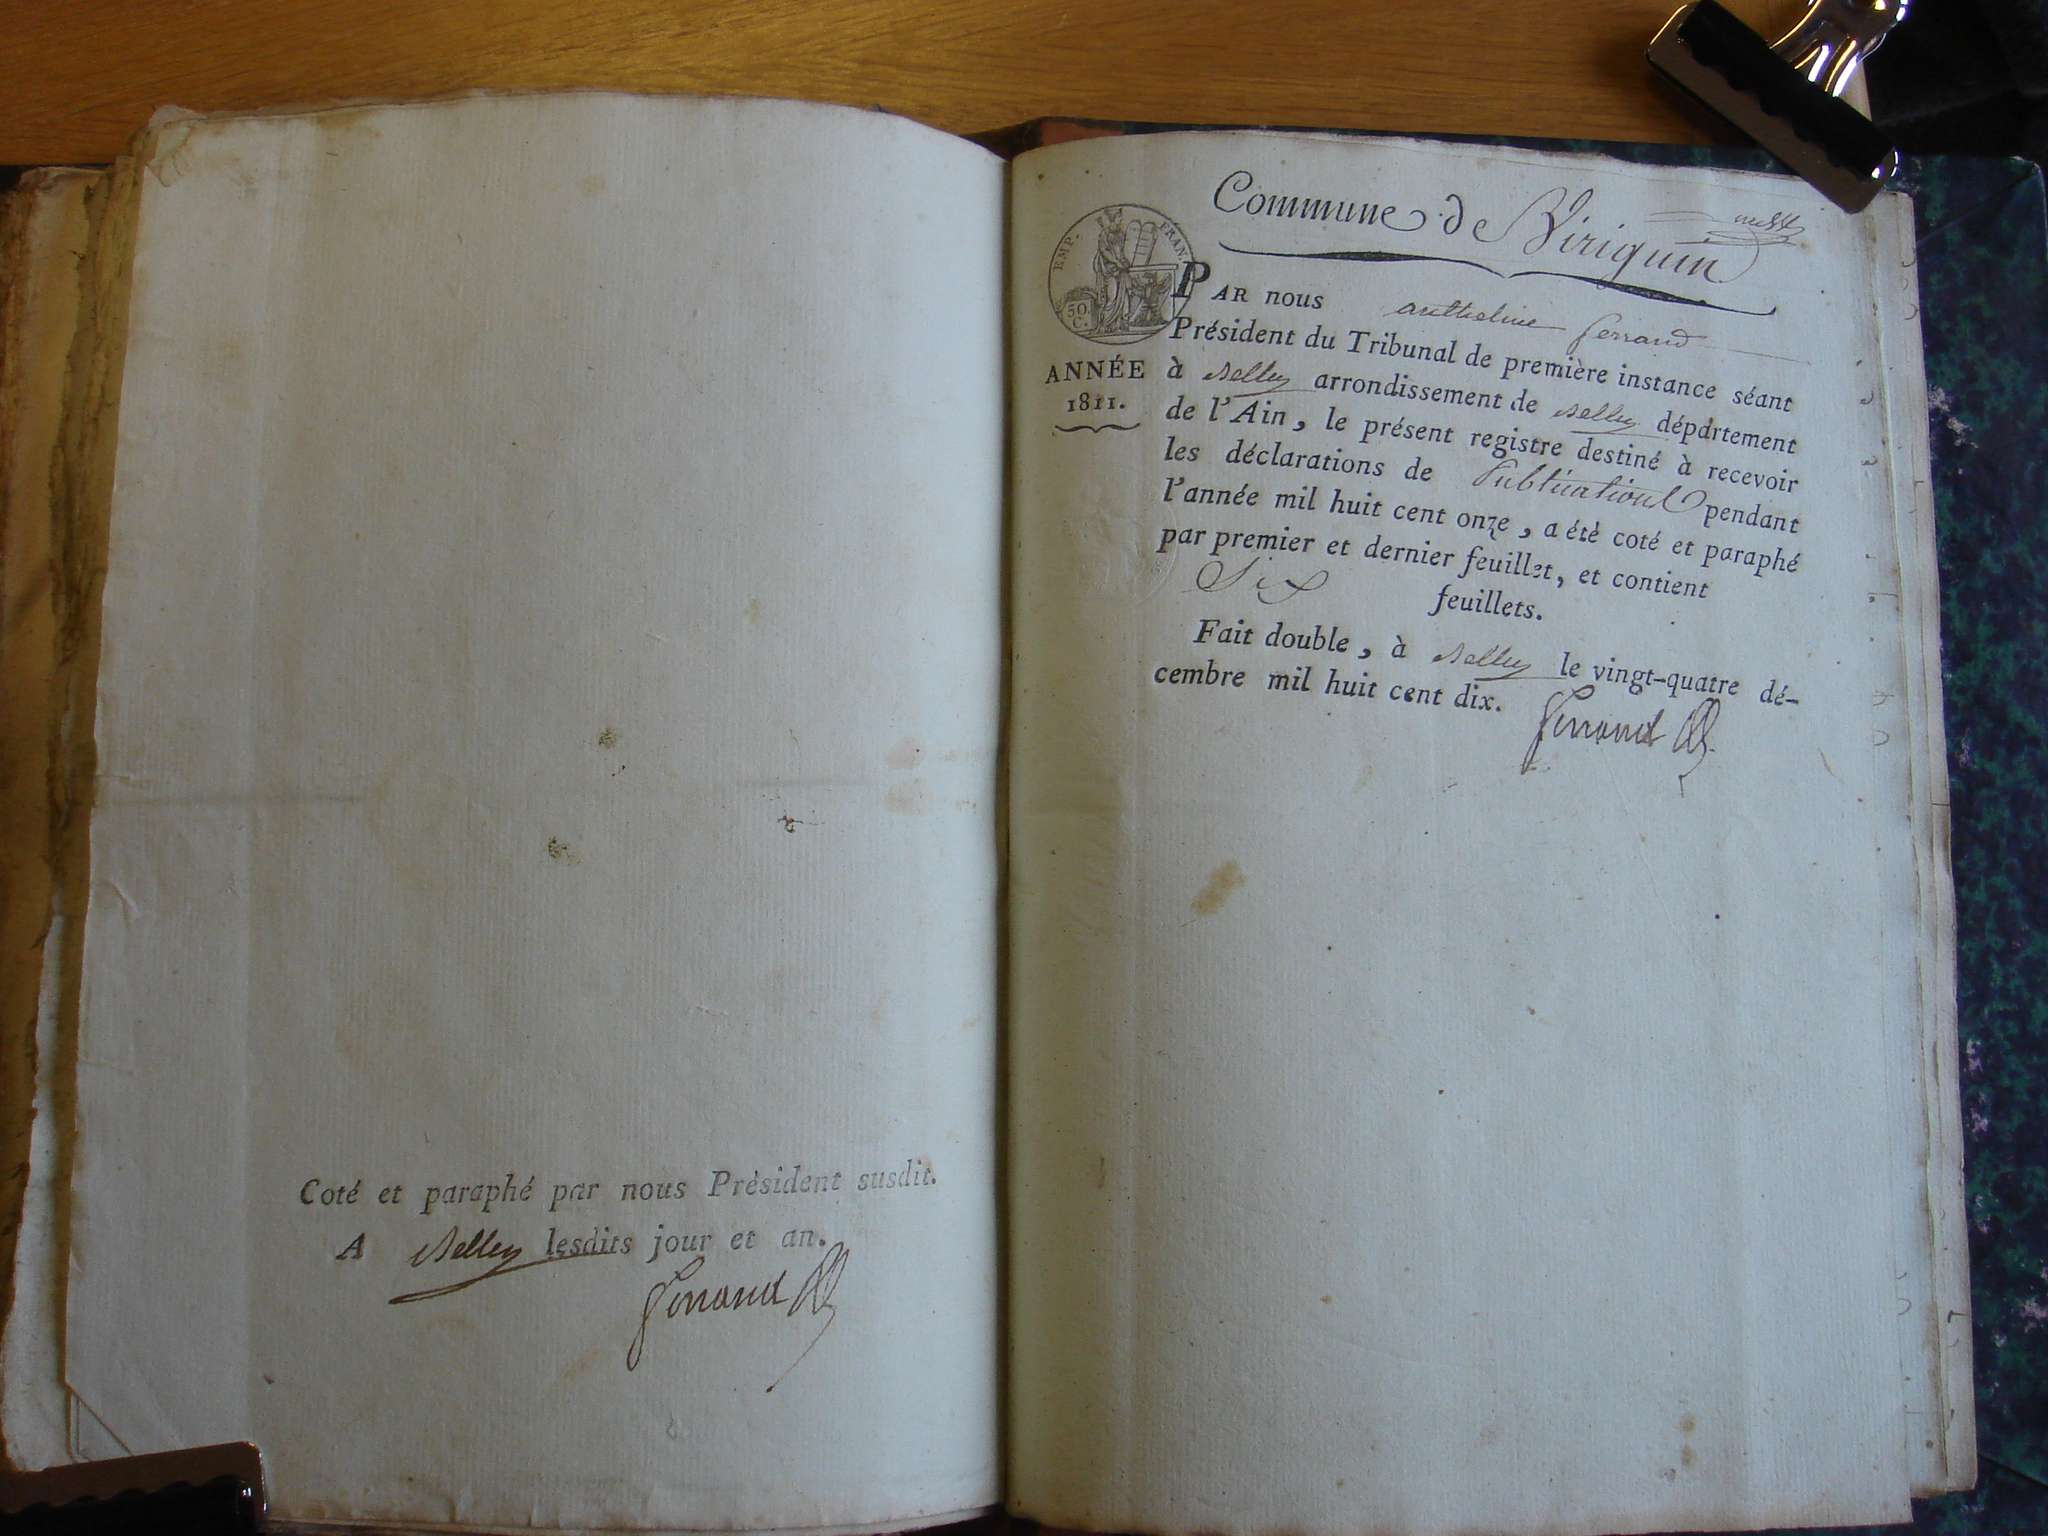 Coté et paraphé par nous Président susdit.
A Belley lesdits jour et an.
Ferrand
Commune de Virignin
EMP. FRAN.
50.
C.
ANNÉE
1811.
PAR nous anthelme ferrand
Président du Tribunal de première instance séant
à Belley arrondissement de Belley département
de l'Ain, le présent registre destiné à recevoir
les déclarations de Publications pendant
l'année mil huit cent onze, a été coté et paraphé
par premier et dernier feuillet, et contient
Six feuillets.
Fait double, à Belley le vingt-quatre dé-
cembre mil huit cent dix.
Ferrand